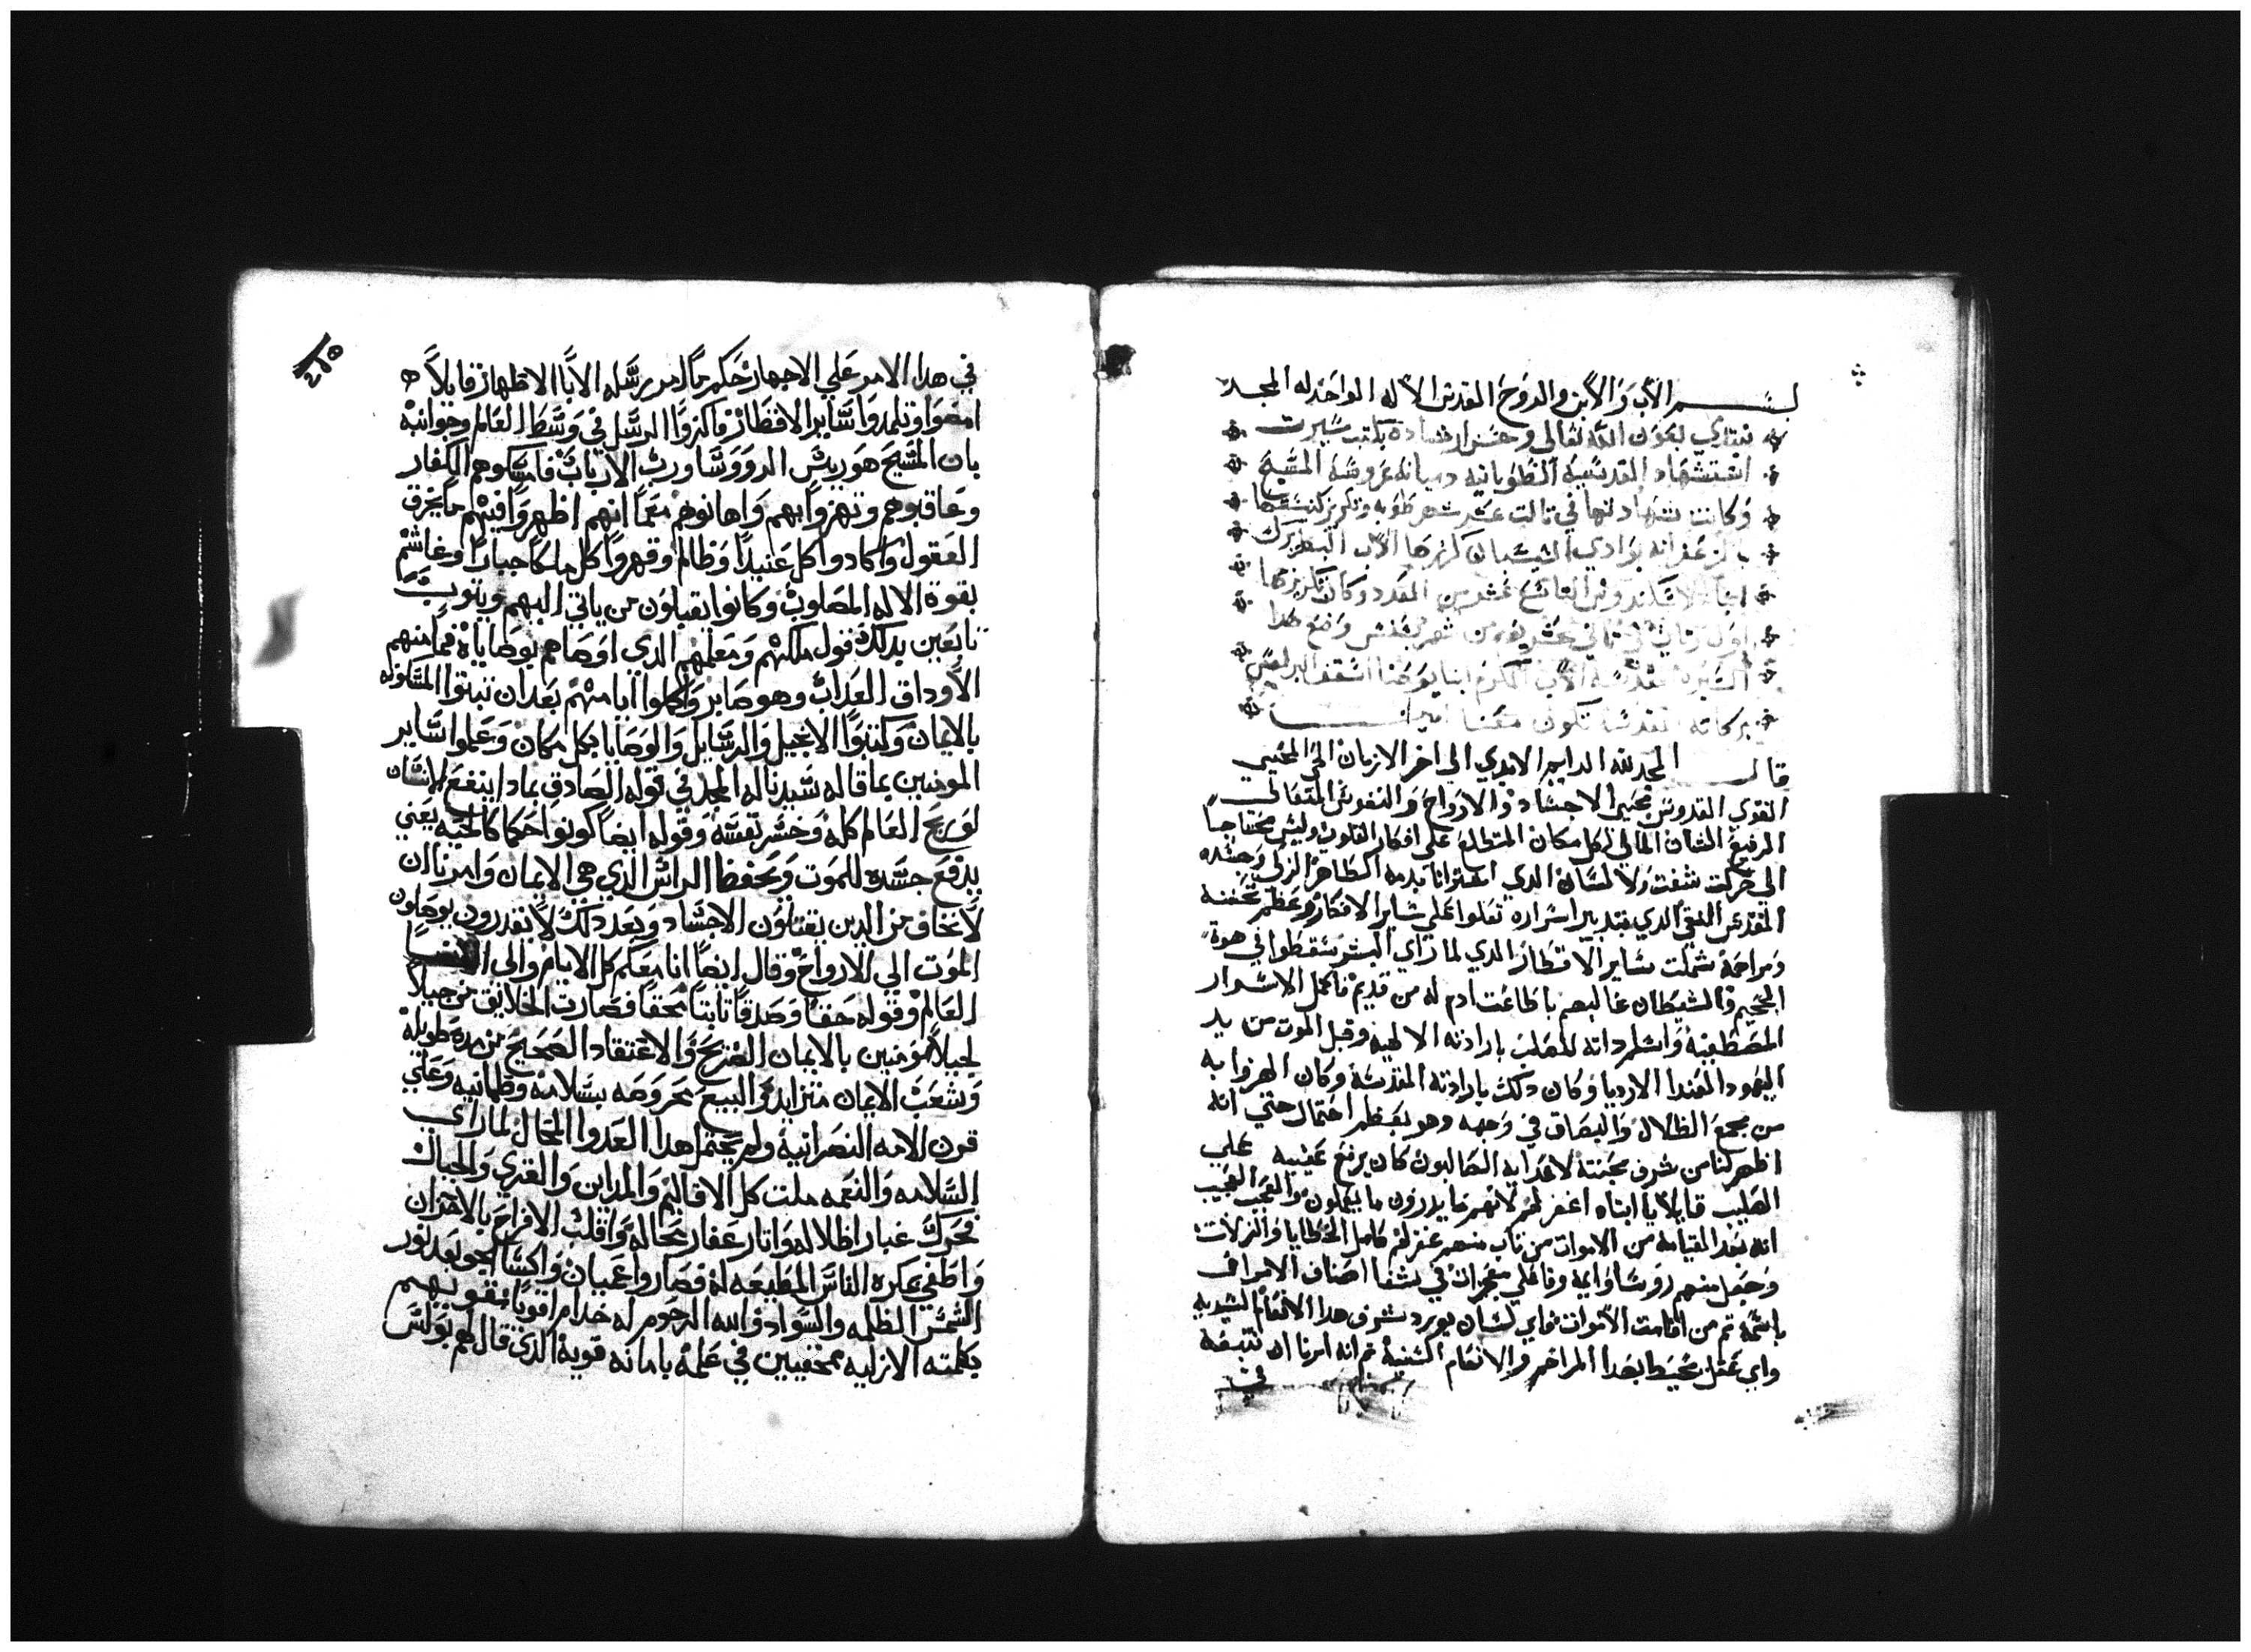 بسم الاب والابن والروح القدس الاله الواحد له المجد
نبتدي بعون الله تعالى وحسن ارشاده بكتب سيرت
استشهاد القديسه الطوبانيه دميانه عروسة المسيح
وكانت شهادتها في تالت عشر شهر طوبه وتكريز كنيستها
بالزعفرانه بوادي السيسبان كرزها الاب البطريرك
انبا الاكسندروس التاسع عشر من العدد وكان تكريزها
اول تاني في تاني عشر يوم من شهر بشنس وضع هدا
السيره المقدسه الاب المكرم انبا يوحنا اسقف البرلس
بركاته المقدسه تكون معنا امين
قال المجد لله الدايم الابدي الى اخر الازمان الحي المحيي
القوي القدوس محيي الاجساد والارواح والنفوس المتعالي
الرفيع الشان المالي لكل مكان المتطلع على افكار القلوب وليس محتاجا
الي حركت شفت ولا لسان الدي اشترانا بدمه الطاهر الزكي وجسده
المقدس النقي الدي بتدبير اسراره تعلوا على ساير الافكار وعظم تحننه
ومراحمه شملت ساير الاقطار الدي لما راي البشر سقطوا في هوة
الجحيم والشيطان غالبهم باطاعت ادم له من قديم فاكمل الاسرار
المصطفيه واسلم داته للصلب بارادته الالهيه وقبل الموت من يد
اليهود العندا الارديا وكان دلك بارادته المقدسة وكان الهزوا به
من مجمع الظلال والبصاق في وجهه وهو بعظم احتمال حتي انه
اظهر لنا من شرف محبته لاعدايه الصالبون كان يرفع عينيه علي
الصليب قايلا يا ابتاه اغفر لهم لانهم ما يدرون ما يعملون والعجب العجيب
انه بعد القيامه من الاموات من تاب منهم غفر لهم كامل الخطايا والزلات
وجعل منهم روسا وايمه وفاعلي معجزات في شفا اصناف الامراض
باسمه تم من اقامت الاموات فاي لسان يورد شرف هدا الانعام الشديه
واي عقل يحيط بهدا المراحم والانعام السنيه تم انه امرنا ان نتبعه
في
٢١٥
في هدا الامر علي الاجهار حكم ما امر رسله الابا الاطهار قايلا
امضوا وتلمدوا ساير الاقطار فاكرزوا الرسل في وسط العالم وجوانبه
بان المسيح هو ريس الروسا ورب الارباب فامسكوهم الكفار
وعاقبوهم وتهزوا بهم واهانوهم معما انهم اظهروا فيهم ما يخرق
العقول واكادوا كل عنيدا وظالم وقهروا كل ملكا جبارا وغاشم
بقوة الاله المصلوب وكانوا يقبلون من ياتي اليهم ويتوب
تابعين بدلك قول ملكهم ومعلمهم الدي اوصاهم بوصاياه فما منهم
الا وداق العداب وهو صابر واكملوا ايامهم بعد ان نبتوا المسكونه
بالايمان وكتبوا الانجيل والرسايل والوصايا بكل مكان وعملوا ساير
المومنين بما قاله سيدنا له المجد في قوله الصادق بمادا ينتفع الانسان
لو ربح العالم كله وخسر نفسه وقوله ايضا كونوا حكما كالحيه يعني
يدفع جسده للموت ويحفظ الراس الدي هي الايمان وامرنا ان
لا نخاف من الدين يقتلون الاجساد وبعد دلك لا يقدرون يوصلون
الموت الي الارواح وقال ايضا انا معكم كل الايام والى انقضا
العالم وقوله حقا وصدقا تابتا محقا فصارت الخلايق من جيلا
لجيلا مومنين بالايمان الصريح والاعتقاد الصحيح من مده طويله
وشعب الايمان متزايد والبيع محروصه بسلامه وطمانيه وعلي
قرن الامه النصرانيه ولم يحتمل هدا العدوا المحال لما راي
السلامه والنعمه ملت كل الاقاليم والمداين والقري والجبال
فحرك غبار اظلاله واتار عفار محاله واقلب الافراح بالاحزان
واطغي بمكره الناس المطيعه له فصاروا عميان واكسا الجو بعد نور
الشمس الظلمه والسواد وابنه الرجوم له خدام اقويا متقويهم
بكلمته الازليه مختفيين في علمه بامانه قويه الدي قال لهم بولس